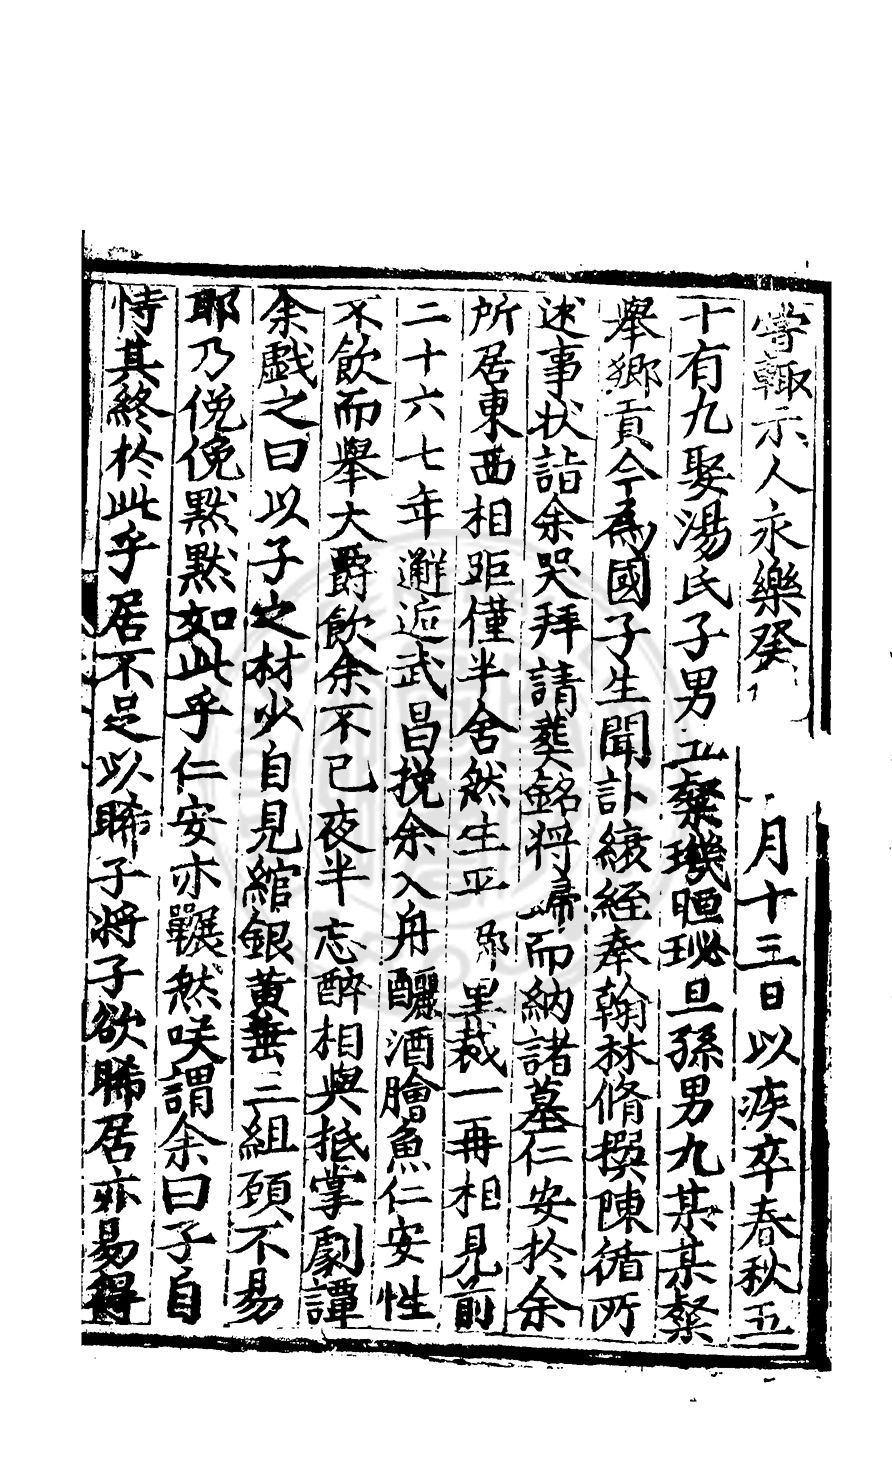 嘗輙示人永樂癸 月十三日以疾卒春秋五
十有九娶湯氏子男五粲璣晅珌旦孫男九某某粲
舉鄉貢今為國子生聞訃縗絰奉翰林脩撰陳循所
述事狀詣余哭拜請葬銘将歸而納諸墓仁安扵余
所居東西相距僅半舍然生平 里裁一再相見前
二十六七年邂逅武昌挽余入舟釃酒膾魚仁安性
不飲而舉大爵飲余不已夜半忘醉相與抵掌劇譚
余戯之曰以子之材少自見綰銀黃垂三組頋不易
耶乃俛俛默默如此乎仁安亦囅然咲謂余曰子自
恃其終扵此乎居不足以睎子将子欲睎居亦易得